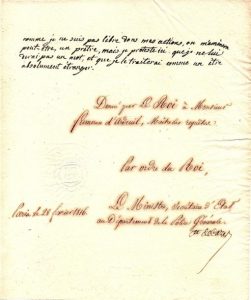 comme je ne suis pas libre dans mes actions, on m'amenera
peut-être, un prêtre, mais je proteste ici que je ne lui
dirai pas un mot, et que je le traiterai comme un être
absolument étranger.
Donné par Le Roi à Monsieur
d'Indreuil, Maître des requêtes.
Par ordre du Roi,
Le Ministre, Secrétaire d'Etat
au Département de la Police Générale.
Paris le 26 fevrier 1816.